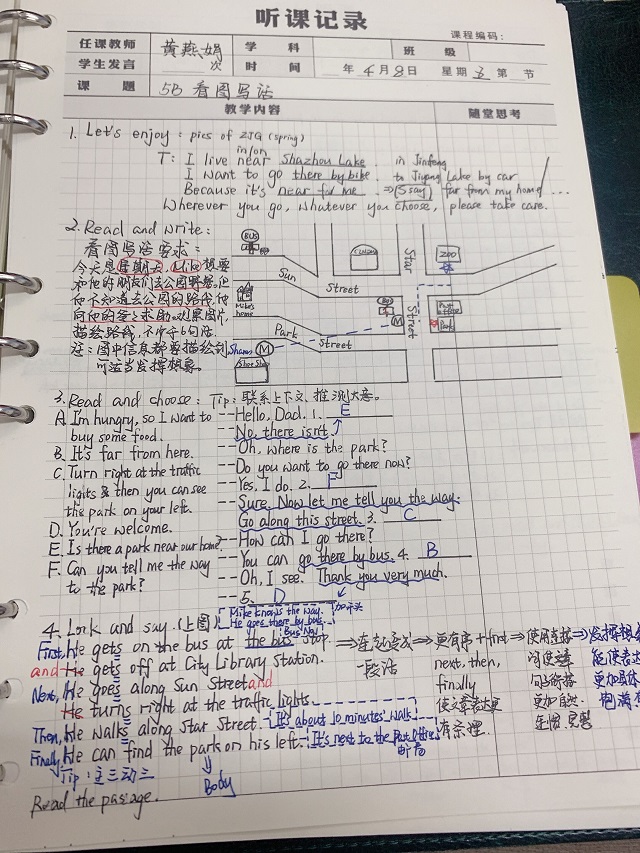 听课记录
课程编码：
任课教师 黄燕娟 学科 班级
学生发言 次 时间 年 4月8日 星期 3 第 节
课题 5B 看图写话
教学内容 随堂思考
1. Let's enjoy: pics of ZJG (spring)
in/on
T: I live near Shazhou Lake. in Jinfeng
I want to go there by bike. to Jiyang Lake by car
Because it's near for me. ⇒ (S say) far from my home ...
Wherever you go, whatever you choose, please take care.
2. Read and write:
看图写话要求：
今天是星期天，Mike想要
和他的朋友们去公园野餐，但
他不知道去公园的路线，他
向他的爸爸求助，观察图片，
描绘路线，不少于6句话。
注：图中信息都要描绘到，
可适当发挥想象。
BUS
CINEMA
Star
ZOO
Sun Street
Mike's home
BUS
Street
Post office
Park
M
Park Street
M
Shoe Shop
3. Read and choose: Tip: 联系上下文、推测大意。
A. I'm hungry, so I want to buy some food.
B. It's far from here.
C. Turn right at the traffic lights & then you can see the park on your left.
D. You're welcome.
E. Is there a park near our home?
F. Can you tell me the way to the park?
--Hello, Dad. 1. E
--No, there isn't.
--Oh, where is the park?
--Do you want to go there now?
--Yes, I do. 2. F
--Sure. Now let me tell you the way.
Go along this street. 3. C
--How can I go there?
--You can go there by bus. 4. B
--Oh, I see. Thank you very much.
--5. D
4. Look and say. (上图)
Mike knows the way. 加开头
He goes there by bus.
Bus No.1
First, He gets on the bus at the bus stop. ⇒ 连起来成 ⇒ 更有序 + first ⇒ 使用连接 ⇒ 发挥想象
and He gets off at City Library Station. 一段话 next, then, 词使 能使表达
Next, He goes along Sun Street and finally 句子衔接 更加具体
He turns right at the traffic lights. 使文章表达更 更加自然. 饱满
Then, He walks along Star Street. It's about 10 minutes' walk. 有条理.
Finally, He can find the park on his left. It's next to the Post Office.
邮局
Tip: 主三动三
Body
Read the passage.